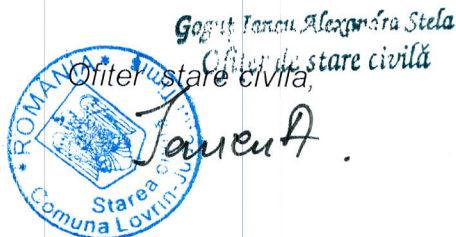 Goguț Iancu Alexandra Stela
Ofițer de stare civilă
Ofiter stare civila,
Iancu A.
*ROMANIA*
Starea
Comuna Lovrin-Ju